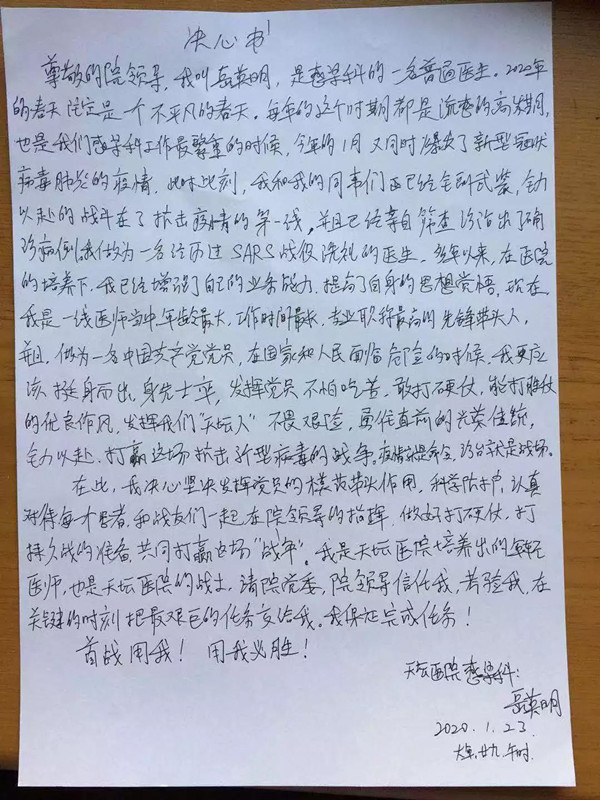 决心书
尊敬的院领导，我叫岳英明，是感染科的一名普通医生。2020年
的春天注定是一个不平凡的春天。每年的这个时期都是流感的高发期，
也是我们感染科工作最繁重的时候，今年的1月又同时爆发了新型冠状
病毒肺炎的疫情。此时此刻，我和我的同事们已经全副武装，全力
以赴的战斗在了抗击疫情的第一线，并且已经亲自筛查诊治出了确
诊病例。我做为一名经历过SARS战役洗礼的医生，多年以来，在医院
的培养下，我已经增强了自己的业务能力，提高了自身的思想觉悟，现在
我是一线医师当中年龄最大，工作时间最长，专业职称最高的先锋带头人，
并且，做为一名中国共产党党员，在国家和人民面临危险的时候，我更应
该挺身而出，身先士卒，发挥党员不怕吃苦，敢打硬仗，能打胜仗
的优良作风，发挥我们“天坛人”不畏艰险，勇往直前的光荣传统，
全力以赴，打赢这场抗击新型病毒的战争。疫情就是命令，诊台就是战场。
在此，我决心坚决发挥党员的模范带头作用，科学防护，认真
对待每个患者，和战友们一起在院领导的指挥，做好打硬仗，打
持久战的准备，共同打赢这场“战争”。我是天坛医院培养出的年轻
医师，也是天坛医院的战士，请院党委，院领导信任我，考验我，在
关键的时刻把最艰巨的任务交给我。我保证完成任务！
首战用我！用我必胜！
天坛医院感染科：
岳英明
2020.1.23.
大年廿九.午时.